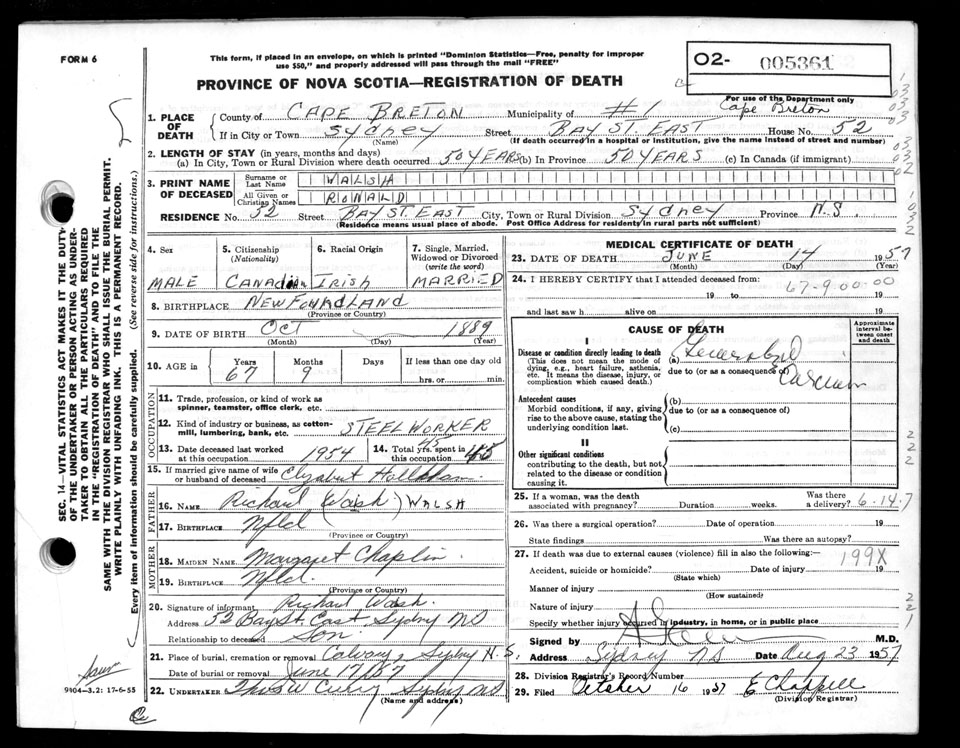 FORM 6
This form, if placed in an envelope, on which is printed "Dominion Statistics—Free, penalty for improper
use $50," and properly addressed will pass through the mail "FREE"
PROVINCE OF NOVA SCOTIA—REGISTRATION OF DEATH
O2- 005361
For use of the Department only
Cape Breton
1. PLACE OF DEATH
County of CAPE BRETON Municipality of #1
If in City or Town Sydney Street BAY ST. EAST House No. 52
(Name) (If death occurred in a hospital or institution, give the name instead of street and number)
2. LENGTH OF STAY (in years, months and days)
(a) In City, Town or Rural Division where death occurred 50 YEARS (b) In Province 50 YEARS (c) In Canada (if immigrant)
3. PRINT NAME OF DECEASED
Surname or Last Name WALSH
All Given or Christian Names RONALD
RESIDENCE No. 52 Street BAY ST. EAST City, Town or Rural Division Sydney Province N.S.
(Residence means usual place of abode. Post Office Address for residents in rural parts not sufficient)
4. Sex
MALE
5. Citizenship
(Nationality)
CANADIAN
6. Racial Origin
IRISH
7. Single, Married, Widowed or Divorced
(write the word)
MARRIED
8. BIRTHPLACE NEWFOUNDLAND
(Province or Country)
9. DATE OF BIRTH OCT 1889
(Month) (Day) (Year)
10. AGE in
Years Months Days If less than one day old
67 9 hrs. or min.
OCCUPATION
11. Trade, profession, or kind of work as
spinner, teamster, office clerk, etc.
12. Kind of industry or business, as cotton-
mill, lumbering, bank, etc. STEEL WORKER
13. Date deceased last worked
at this occupation 1954
14. Total yrs. spent in
this occupation 45
15. If married give name of wife
or husband of deceased
FATHER
16. NAME Richard Walsh) WALSH
17. BIRTHPLACE Nfld
(Province or Country)
MOTHER
18. MAIDEN NAME Margaret Chaplin
19. BIRTHPLACE Nfld.
(Province or Country)
20. Signature of informant Richard Walsh.
Address 52 Bay St. East Sydney NS
Relationship to deceased Son.
21. Place of burial, cremation or removal Calvary, Sydney N.S.
Date of burial or removal June 17/57
22. UNDERTAKER Thos W Curry Sydney NS
(Name and address)
MEDICAL CERTIFICATE OF DEATH
23. DATE OF DEATH JUNE 14 1957
(Month) (Day) (Year)
24. I HEREBY CERTIFY that I attended deceased from: 67-9 00:00
19 to 19
and last saw h alive on 19
CAUSE OF DEATH
Approximate interval between onset and death
I
Disease or condition directly leading to death
(This does not mean the mode of
dying, e.g., heart failure, asthenia,
etc. It means the disease, injury, or
complication which caused death.)
(a) Generalized
due to (or as a consequence of)
Antecedent causes
Morbid conditions, if any, giving
rise to the above cause, stating the
underlying condition last.
(b)
due to (or as a consequence of)
(c)
II
Other significant conditions
contributing to the death, but not
related to the disease or condition
causing it.
25. If a woman, was the death
associated with pregnancy? Duration weeks. Was there a delivery? 6-14-7
26. Was there a surgical operation? Date of operation 19
State findings Was there an autopsy?
27. If death was due to external causes (violence) fill in also the following:— 199X
Accident, suicide or homicide? Date of injury 19
(State which)
Manner of injury
(How sustained)
Nature of injury
Specify whether injury occurred in industry, in home, or in public place
Signed by M.D.
Address Sydney NS Date Aug 23 1957
28. Division Registrar's Record Number
29. Filed October 16 1957 E Chappell
(Division Registrar)
SEC. 14—VITAL STATISTICS ACT MAKES IT THE DUTY
OF THE UNDERTAKER OR PERSON ACTING AS UNDER-
TAKER TO OBTAIN ALL THE PARTICULARS REQUIRED
IN THE "REGISTRATION OF DEATH" AND TO FILE THE
SAME WITH THE DIVISION REGISTRAR WHO SHALL ISSUE THE BURIAL PERMIT.
WRITE PLAINLY WITH UNFADING INK. THIS IS A PERMANENT RECORD.
Every item of information should be carefully supplied. (See reverse side for instructions.)
9404—3.2: 17-6-55